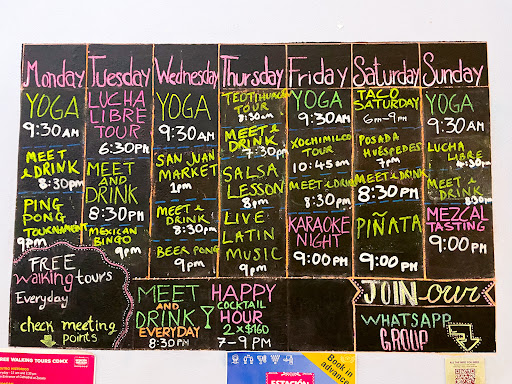 Monday
YOGA
9:30AM
MEET
& DRINK
8:30PM
PING
PONG
TOURNAMENT
9PM
Tuesday
LUCHA
LIBRE
TOUR
6:30PM
MEET
AND
DRINK
8:30PM
MEXICAN
BINGO
9PM
Wednesday
YOGA
9:30AM
SAN JUAN
MARKET
1PM
MEET &
DRINK
8:30PM
BEER PONG
9PM
Thursday
TEOTIHUACAN
TOUR
8:30AM
MEET &
DRINK
SALSA
LESSON
8PM
LIVE
LATIN
MUSIC
9PM
Friday
YOGA
9:30AM
XOCHIMILCO
TOUR
10:45AM
MEET & DRINK
8:30PM
KARAOKE
NIGHT
9:00PM
Saturday
TACO
SATURDAY
6PM-9PM
POSADA
HUÉSPEDES
7PM
MEET & DRINK
8:30PM
PIÑATA
9:00PM
Sunday
YOGA
9:30AM
LUCHA
LIBRE
MEET &
DRINK 8:30PM
MEZCAL
TASTING
9:00PM
FREE
walking tours
Everyday
check meeting
points
MEET
AND
DRINK
EVERYDAY
8:30PM
HAPPY
COCKTAIL
HOUR
2x$160
7-9PM
JOIN our
WHATSAPP
GROUP
FREE WALKING TOURS CDMX
Book in
advance
ESTACIÓN